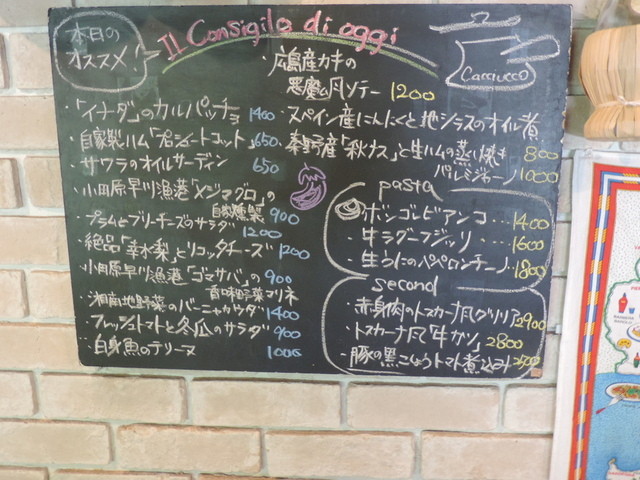 本日の
オススメ!
Il Consiglo di oggi
Cacciucco
・「イナダ」のカルパッチョ 1400
・自家製ハム「プロシュートコット」650
・サワラのオイルサーディン 650
・小田原早川漁港「メジマグロ」の
自家燻製 900
・プラムとブリーチーズのサラダ
1200
・絶品「幸水梨」とリコッタチーズ 1200
・小田原早川漁港「ゴマサバ」の 900
香味野菜マリネ
・湘南地野菜のバーニャカウダ 1400
・フレッシュトマトと冬瓜のサラダ 900
・白身魚のテリーヌ 1000
・広島産カキの
悪魔風ソテー 1200
・スペイン産にんにくと地シラスのオイル煮
800
・秦野産「秋ナス」と生ハムの蒸し焼き
パルミジャーノ 1000
pasta
・ボンゴレビアンコ...1400
・牛ラグーフジッリ....1600
・生うにのペペロンチーノ.1800
second
・赤身肉のトスカーナ風グリリア 2900
・トスカーナ風「牛カツ」2800
・豚の黒こしょうトマト煮込み